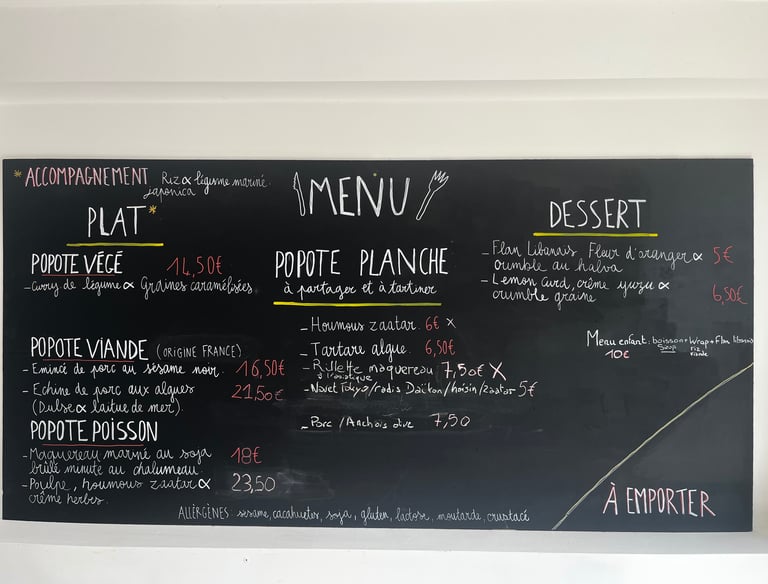 * ACCOMPAGNEMENT Riz & légume mariné.
japonica
PLAT*
POPOTE VÉGÉ 14,50€
- Curry de légume & Graines caramélisées
POPOTE VIANDE (ORIGINE FRANCE)
- Emincé de porc au sésame noir. 16,50€
- Echine de porc aux algues 21,50€
(Dulse & laitue de mer).
POPOTE POISSON
- Maquereau mariné au soja 18€
brûlé minute au chalumeau.
- Poulpe, houmous zaatar & 23,50
crème herbes.
MENU
POPOTE PLANCHE
à partager et à tartiner
- Houmous zaatar. 6€ x
- Tartare algue. 6,50€
- Rillette maquereau 7,50€ X
à l'asiatique
- Navet Tokyo/radis Daïkon/hoisin/zaatar 5€
- Porc / Anchois olive 7,50
DESSERT
- Flan Libanais Fleur d'oranger & 5€
crumble au halva
- Lemon curd, crème yuzu & 6,50€
crumble graine
Menu enfant: boisson + Wrap + Flan libanais
10€ Sirop riz
viande
À EMPORTER
ALLÈRGÈNES: sésame, cacahuètes, soja, gluten, lactose, moutarde, crustacé